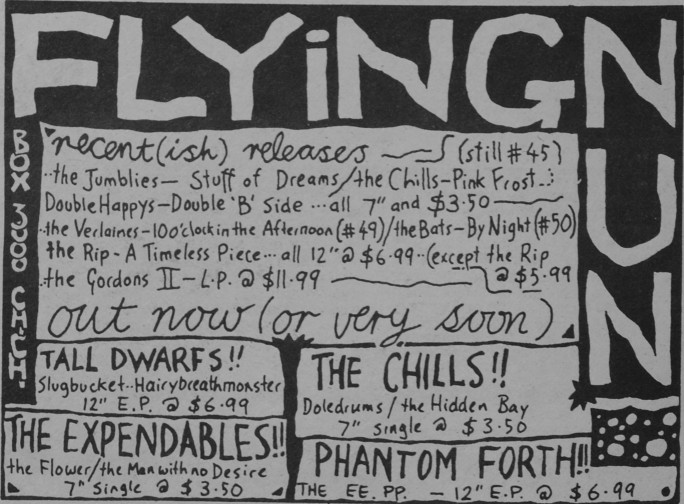 FLYiNG NUN
BOX 3000 CHCH.
recent(ish) releases (still #45)
..the Jumblies— Stuff of Dreams/the Chills-Pink Frost..
DoubleHappys-Double 'B' Side ...all 7" and $3.50
..the Verlaines-10 O'clock in the Afternoon (#49)/the Bats-By Night (#50)
the Rip-A Timeless Piece... all 12" @ $6.99..(except the Rip
.the Gordons II-L.P. @ $11.99 @ $5.99
out now (or very soon)
TALL DWARFS!!
Slugbucket..Hairybreathmonster
12" E.P. @ $6.99
THE CHILLS!!
Doledrums/the Hidden Bay
7" single @ $3.50
THE EXPENDABLES!!
the Flower/the Man with no Desire
7" Single @ $3.50
PHANTOM FORTH!!
THE EE. PP. — 12" E.P. @ $6.99